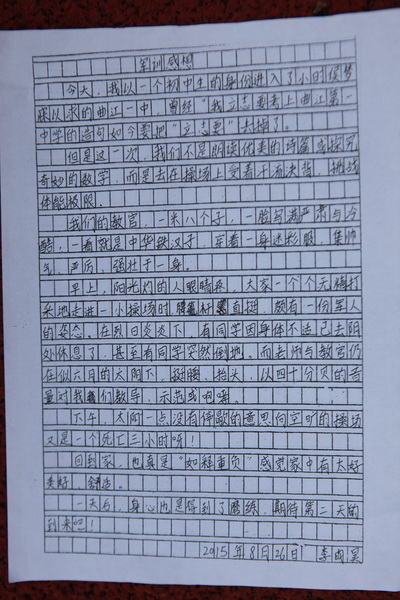 军训感想
今天，我以一个初中生的身份进入了小时侯梦
寐以求的曲江一中，曾经“我立志要考上曲江第一
中学的造句如今要把“立志要”去掉了。
但是这一次，我们不是朗读优美的诗篇或探究
奇妙的数学，而是去在操场上实着于流汗背，挑战
体能极限。
我们的教官，一米八个子，一脸写满严肃与冷
酷，一看就是中华铁汉子，穿着一身迷彩服，集帅
气，严厉，强壮于一身。
早上，阳光灼的人眼睛疼，大家一个个无精打
采地走进一小操场时 腰杆 直挺，颇有一份军人
的姿态。在烈日炎炎下，有同学因身体不适已去阴
处休息了，甚至有同学突然倒地。而老师与教官仍
在似六月的太阳下，挺腰，抬头，以四十分贝的音
量对我们教导，示范或咆哮。
下午，太阳一点没有停歇的意思向空旷的操场
又是一个死亡三小时呀！
回到家，也真是“如释重负”感觉家中有太好
美好，舒适。
一天后，身心也是得到了磨练，期待第二天的
到来吧！
2015年8月26日 李雨昊